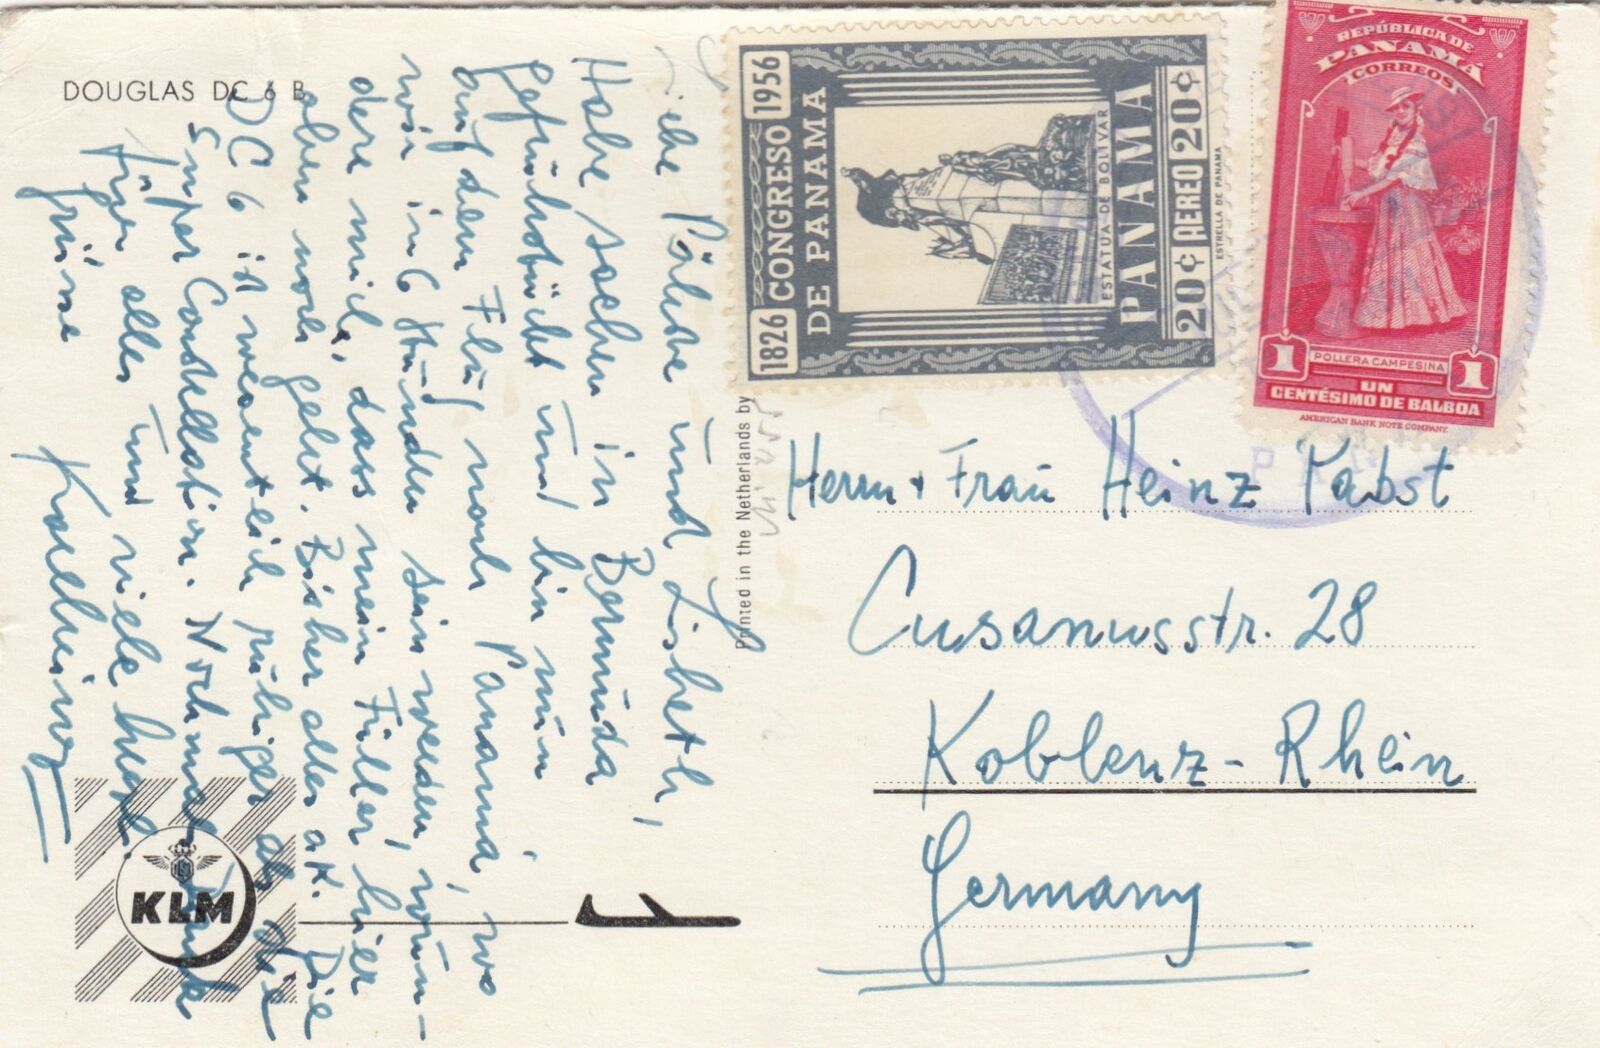 DOUGLAS DC 6 B
Liebe Pölübe und Lisbeth,
Habe soeben in Bermuda
gefrühstückt und bin nun
auf dem Flug nach Panama, wo
wir in 6 Stunden sein werden, wun-
dere mich, dass mein Füller hier
oben noch geht. Bisher alles o.K. Die
DC 6 ist wesentlich ruhiger als die
Super Constellation. Nochmal Dank
für alles und viele herzl.
Grüsse
Karlheinz
KLM
Printed in the Netherlands by
1826 CONGRESO 1956
DE PANAMA
ESTATUA DE BOLIVAR
PANAMA
ESTRELLA DE PANAMA
20¢ AEREO 20¢
REPÚBLICA DE
PANAMÁ
CORREOS
POLLERA CAMPESINA
1 UN 1
CENTÉSIMO DE BALBOA
AMERICAN BANK NOTE COMPANY
Herrn + Frau Heinz Pabst
Cusanusstr. 28
Koblenz-Rhein
Germany